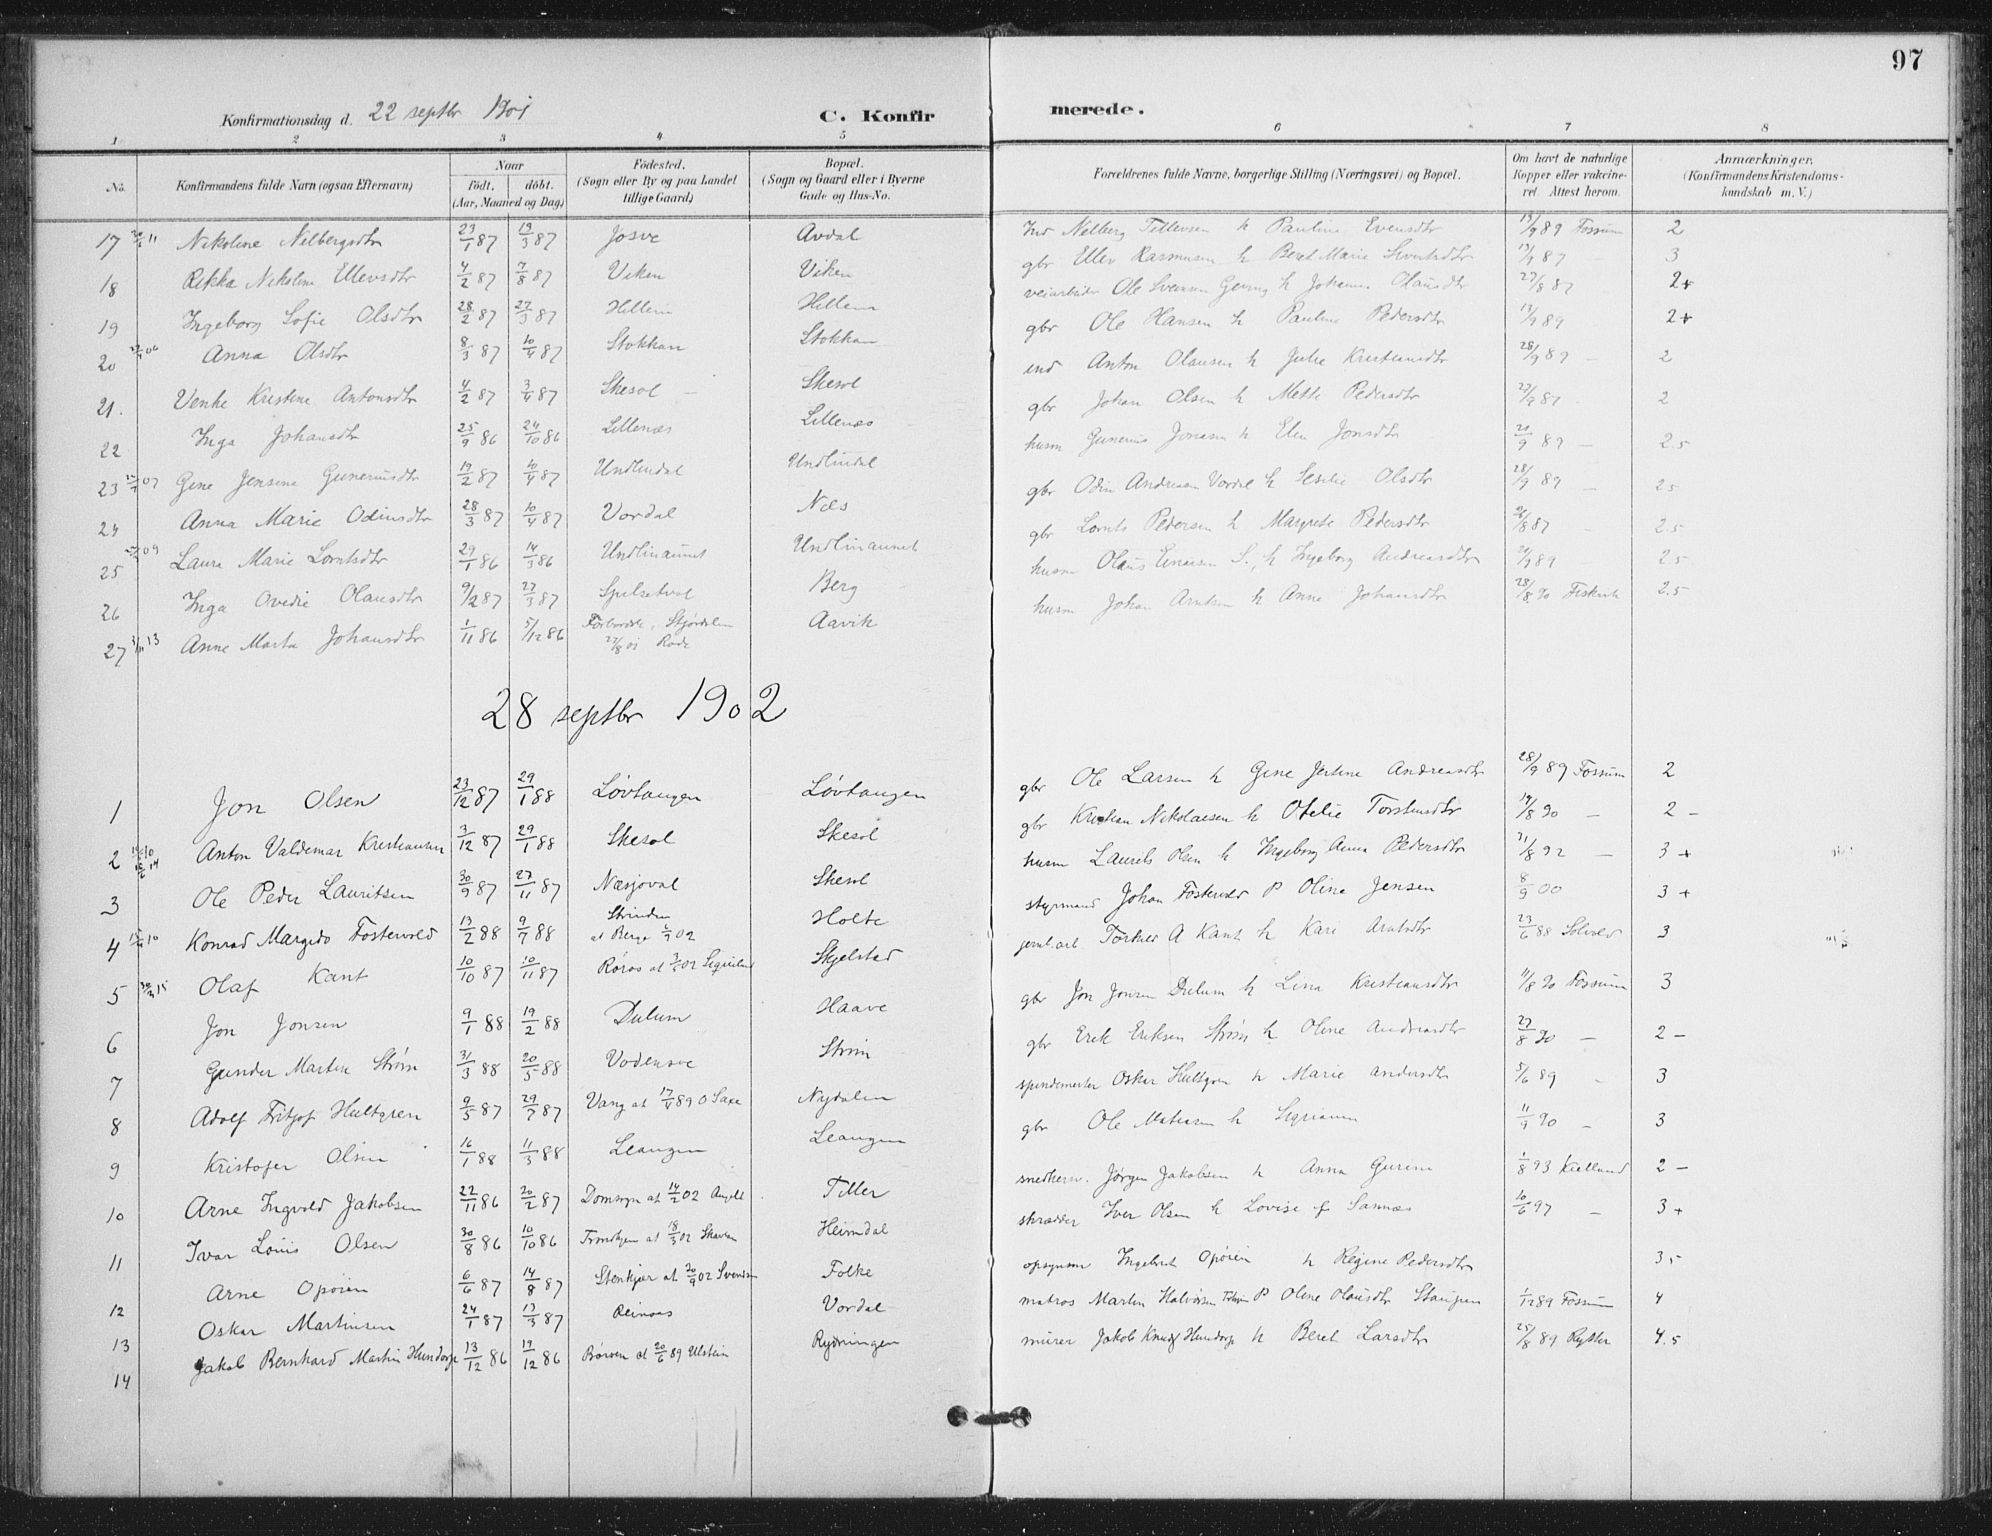 97
Konfirmationsdag d. 22 septbr 1901
C. Konfirmerede.
1 2 3 4 5 6 7 8
No.
Konfirmandens fulde Navn (ogsaa Efternavn)
Naar
født. døbt.
(Aar, Maaned og Dag)
Fødested.
(Sogn eller By og paa Landet
tillige Gaard)
Bopæl.
(Sogn og Gaard eller i Byerne
Gade og Hus-No.
Forældrenes fulde Navne, borgerlige Stilling (Næringsvei) og Bopæl.
Om havt de naturlige
Kopper eller vakcine-
ret Attest herom.
Anmærkninger.
(Konfirmandens Kristendoms-
kundskab m. V.)
17 Nikoline Nilbergsdtr 23/1 87 13/3 87 Josve Avdal Ind Nilberg Tellevsen h Pauline Evensdtr 13/9 89 Fossum 2
18 Rikka Nikoline Ellevsdtr 4/2 87 7/8 87 Viken Viken gbr Ellev Rasmusen h Beret Marie Sivertsdtr 13/9 87 — 3
19 Ingeborg Sofie Olsdtr 28/2 87 27/3 87 Hillem Hillem veiarbeider Ole Svensen h Johanna Olausdtr 27/8 87 2+
20 Anna Olsdtr 8/3 87 10/4 87 Stokkan Stokkan gbr Ole Hansen h Pauline Pedersdtr 13/9 89 2+
21. Venke Kristine Antonsdtr 4/2 87 3/4 87 Skesol Skesol ind Anton Olausen h Julie Kristiansdtr 28/9 89 — 2
22 Inga Johansdtr 25/9 86 24/10 86 Lillenæs Lillenæs gbr Johan Olsen h Mette Pedersdtr 27/9 87 2
23 07 Gine Jensine Guneriusdtr 19/2 87 10/4 87 Undlindal Undlindal husm Gunerius Jonasen h Elen Jonsdtr 20/9 89 — 2.5
24 Anna Marie Odinsdtr 28/3 87 10/4 87 Vordal Næs gbr Odin Andreasen Vordal h Sesilie Olsdtr 28/9 89 — 2.5
25 09 Laura Marie Lorntsdtr 29/1 86 14/3 86 Undlinaunet Undlinaunet gbr Lornts Pedersen h Margrete Pedersdtr 26/8 87 — 2.5
26 Inga Ovedie Olausdtr 9/2 87 27/3 87 Berg husm Olaus Einarsen S., h Ingeborg Andreasdtr 89 — 2.5
27 13 Anne Marta Johansdtr 1/11 86 5/12 86 Forbordsk, Stjørdalen Aavik husm Johan Arntsen h Anne Johansdtr 28/8 90 2.5
27/8 01 Rode
28 septbr 1902
1 Jon Olsen 23/12 87 29/1 88 Løvtangen Løvtangen gbr Ole Larsen h Gine Jertine Andreasdtr 28/9 89 Fossum 2
2 Anton Valdemar Kristiansen 3/12 87 29/1 88 Skesol Skesol gbr Kristian Nikolaesen h Otelie Torstensdtr 19/8 90 — 2 —
3 Ole Peder Lauritsen 30/9 87 27/11 87 Næsjoval Skesol husm Laurits Olsen h Ingeborg Anna Pedersdtr 31/8 92 — 3 +
4 15/4 10 Konrad Margido Fostervold 13/2 88 9/7 88 Strinden Holte styrmand Johan Fostervold P Oline Jensen 8/9 00 3 +
at Berge 6/9 02
5 15 Olaf Kant 10/10 87 10/11 87 Røros at 3/5 02 Skjelstad jernb.arb Torkild A Kant h Kari Arntsdtr 23/6 88 Solvold 3
6 Jon Jonsen 9/1 88 19/2 88 Dulum Haave gbr Jon Jonsen Dulum h Lina Kristiansdtr 11/8 90 Fossum 3
7 Gunder Martin Strøm 31/3 88 20/5 88 Vodensve Strøm gbr Erik Eriksen Strøm h Oline Andreasdtr 27/8 90 — 2 —
8 Adolf Fritjof Hultgren 9/5 87 29/7 87 Vang at 17/4 89 O Saxe Nydalen spindemester Oskar Hultgren h Marie Andersdtr 5/6 89 — 3
9 Kristofer Olsen 16/1 88 11/3 88 Leangen Leangen gbr Ole Matiasen h Sigrianna 11/9 90 — 3
10 Arne Ingvold Jakobsen 22/11 86 20/2 87 Domsogn at 14/2 02 Angell Tiller snedkersv. Jørgen Jakobsen h Anna Gurine 1/8 93 Kielland 2 —
11 Ivar Louis Olsen 30/8 86 10/10 86 Trondhjem at 18/3 02 Skavlan Heimdal skrædder Iver Olsen h Lovise f Sannæs 10/6 97 — 3 +
12 Arne Opøien 6/6 87 14/8 87 Stenkjær at 20/9 02 Svendsen Folke opsynsm Ingebret Opøien h Regine Pedersdtr 3.5
13 Oskar Martinsen 24/1 87 13/3 87 Reinaas Vordal matros Martin Halvorsen P Oline Olausdtr Staupen 1/12 89 Fossum 4
14 Jakob Bernhard Martin Hundorp 13/12 86 19/12 86 Børsen at 20/6 89 Ulstein Rydningen murer Jakob Knuds Hundorp h Beret Larsdtr 25/8 89 Rytter 4.5